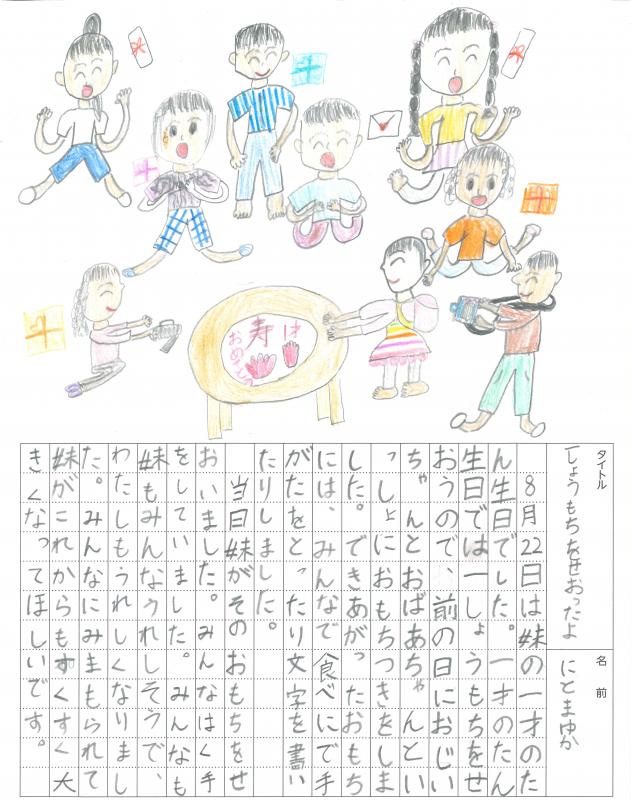 寿
は
おめでとう
タイトル
一しょうもちをせおったよ
名前
にとまゆか
8月22日は妹の一才のた
ん生日でした。一才のたん
生日では一しょうもちをせ
おうので、前の日におじい
ちゃんとおばあちゃんとい
っしょにおもちつきをしま
した。できあがったおもち
には、みんなで食べにで手
がたをとったり文字を書い
たりしました。
当日妹がそのおもちをせ
おいました。みんなはく手
をしていました。みんなも
妹もみんなうれしそうで、
わたしもうれしくなりまし
た。みんなにみまもられて
妹がこれからもすくすく大
きくなってほしいです。